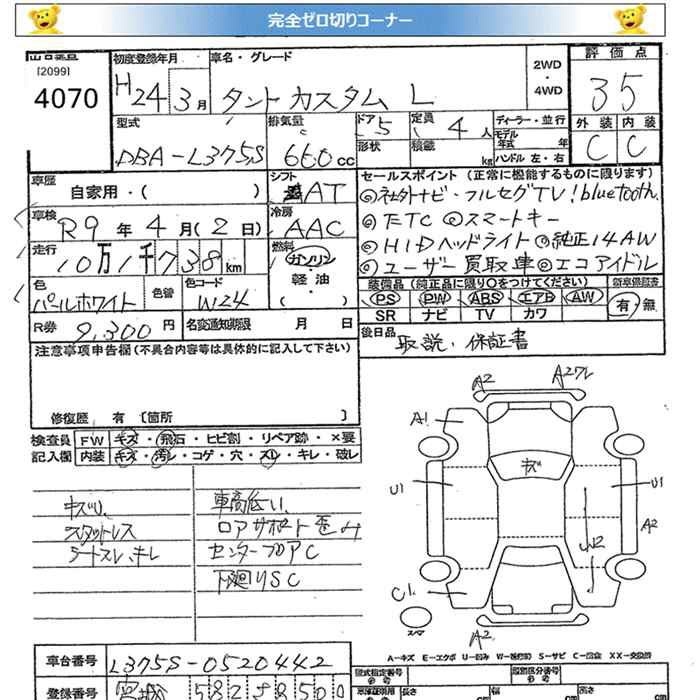 完全ゼロ切りコーナー
出品番号 初度登録年月 車名・グレード 2WD・4WD 評価点
[2099]
4070 H24 3月 タント カスタム L 35
型式 排気量 ドア 5 定員 4人 ディーラー・並行 外装 内装
DBA-L375S 660cc 形状 積載 kg モデル年式 年 C C
ハンドル 左・右
車歴 シフト セールスポイント (正常に機能するものに限ります)
自家用・( ) AT ◎社外ナビ・フルセグTV!bluetooth.
車検 冷房 ◎ETC ◎スマートキー
R9年4月(2日) AAC ◎HIDヘッドライト ◎純正14AW
走行 燃料 ◎ユーザー買取車 ◎エコアイドル
10万1千738km ガソリン・軽油
色 色替 色コード 装備品(純正品に限り○をつけてください) 新車保証書
パールホワイト W24 PS PW ABS エアB AW 有 無
SR ナビ TV カワ
R券 9,300円 名変通知期限 月 日 後日品 取説・保証書
注意事項申告欄(不具合内容等は具体的に記入して下さい)
修復歴 有 〔箇所 〕
検査員 FW キズ・飛石・ヒビ割・リペア跡・×要
記入欄 内装 キズ・汚レ・コゲ・穴・スレ・キレ・破レ
A2 A2ワレ
A1 キズ
U1 U1
A2
W2
C1
スペア
A2
キズU. 車高低い.
スタットレス ロアサポート歪み
シートスレ、キレ センターフロアC
下廻りSC
A-キズ E-エクボ U-凹み W-補修跡 S-サビ C-腐食 XX-交換済
車台番号 L375S-0520442
登録番号 宮城 582
型式指定番号 類別区分番号
長さ 幅 高さ